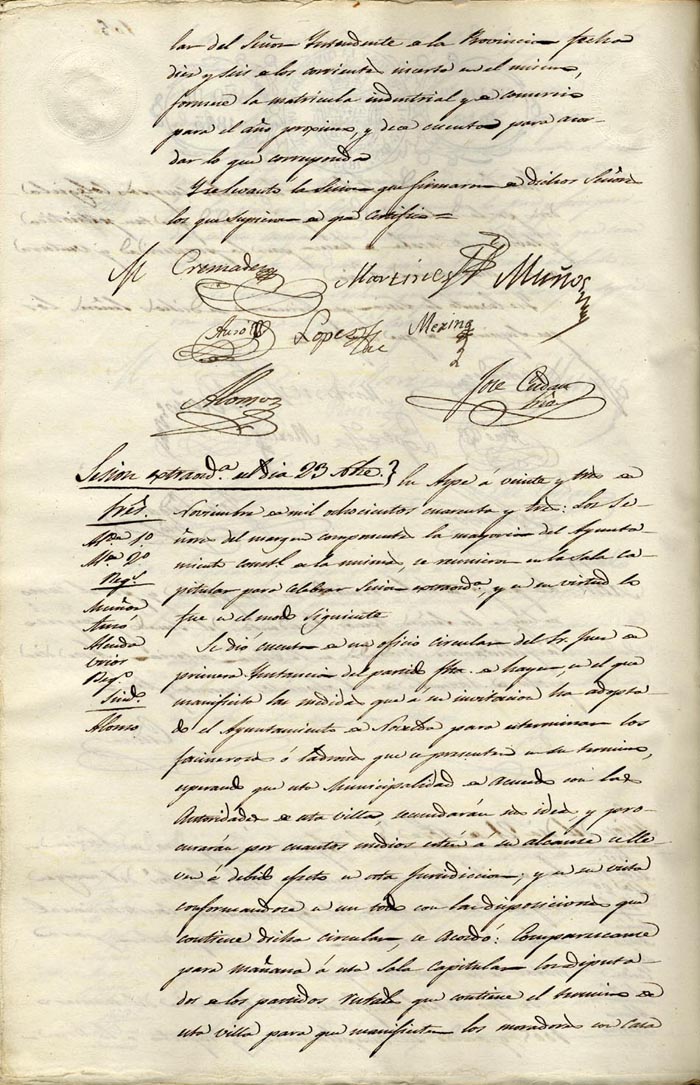 lar del Señor Yntendente e la Provincia fecha
diez y seis e los corrientes inserta en el mismo,
formese la matricula industrial y e comercio
para el año proximo, y dese cuenta para acor-
dar lo que corresponda
Y se levanto la Sesion que firmaron e dichos Señores
los que supieron e que certifico =
M Cremades Martinez Muños
Ausó Lopez Mexina
Alonso Jose Cerdan
Sesion extraord.ª del dia 23 Nbe. } En Aspe á veinte y tres e
Pres.
Noviembre e mil ochocientos cuarenta y tres: Los Se-
Alc.e 1º
ñores del margen componentes la mayoria del Ayunta-
Alc.e 2º
miento constl. e la misma, se reunieron en la sala ca-
Reg.s
pitular para celebrar Sesion extraord.ª, y en su virtud lo
Muñoz
fue en el modo siguiente
Ausó
Se dió cuenta e un oficio circular del Sr. Juez e
primera Ynstancia del partido fha. e hayer, en el que
Reg.º
manifiesta las medidas que á su invitacion ha adopta-
Sind.
do el Ayuntamiento e Novelda para esterminar los
Alonso
facinerosos ó ladrones que se presenten en su termino,
esperando que esta Municipalidad e Acuerdo con las
Autoridades e esta villa secundarán sus ideas, y pro-
curarán por cuantos medios estén á su alcance se lle-
ven á debido efecto en esta Jurisdiccion; y en su vista
conformandose en un todo con las disposiciones que
contiene dicha circular, se Acordó: Comparescan
para mañana á esta Sala capitular los diputa-
dos e los partidos rurales que contiene el termino e
esta villa para que manifiesten los moradores con casa